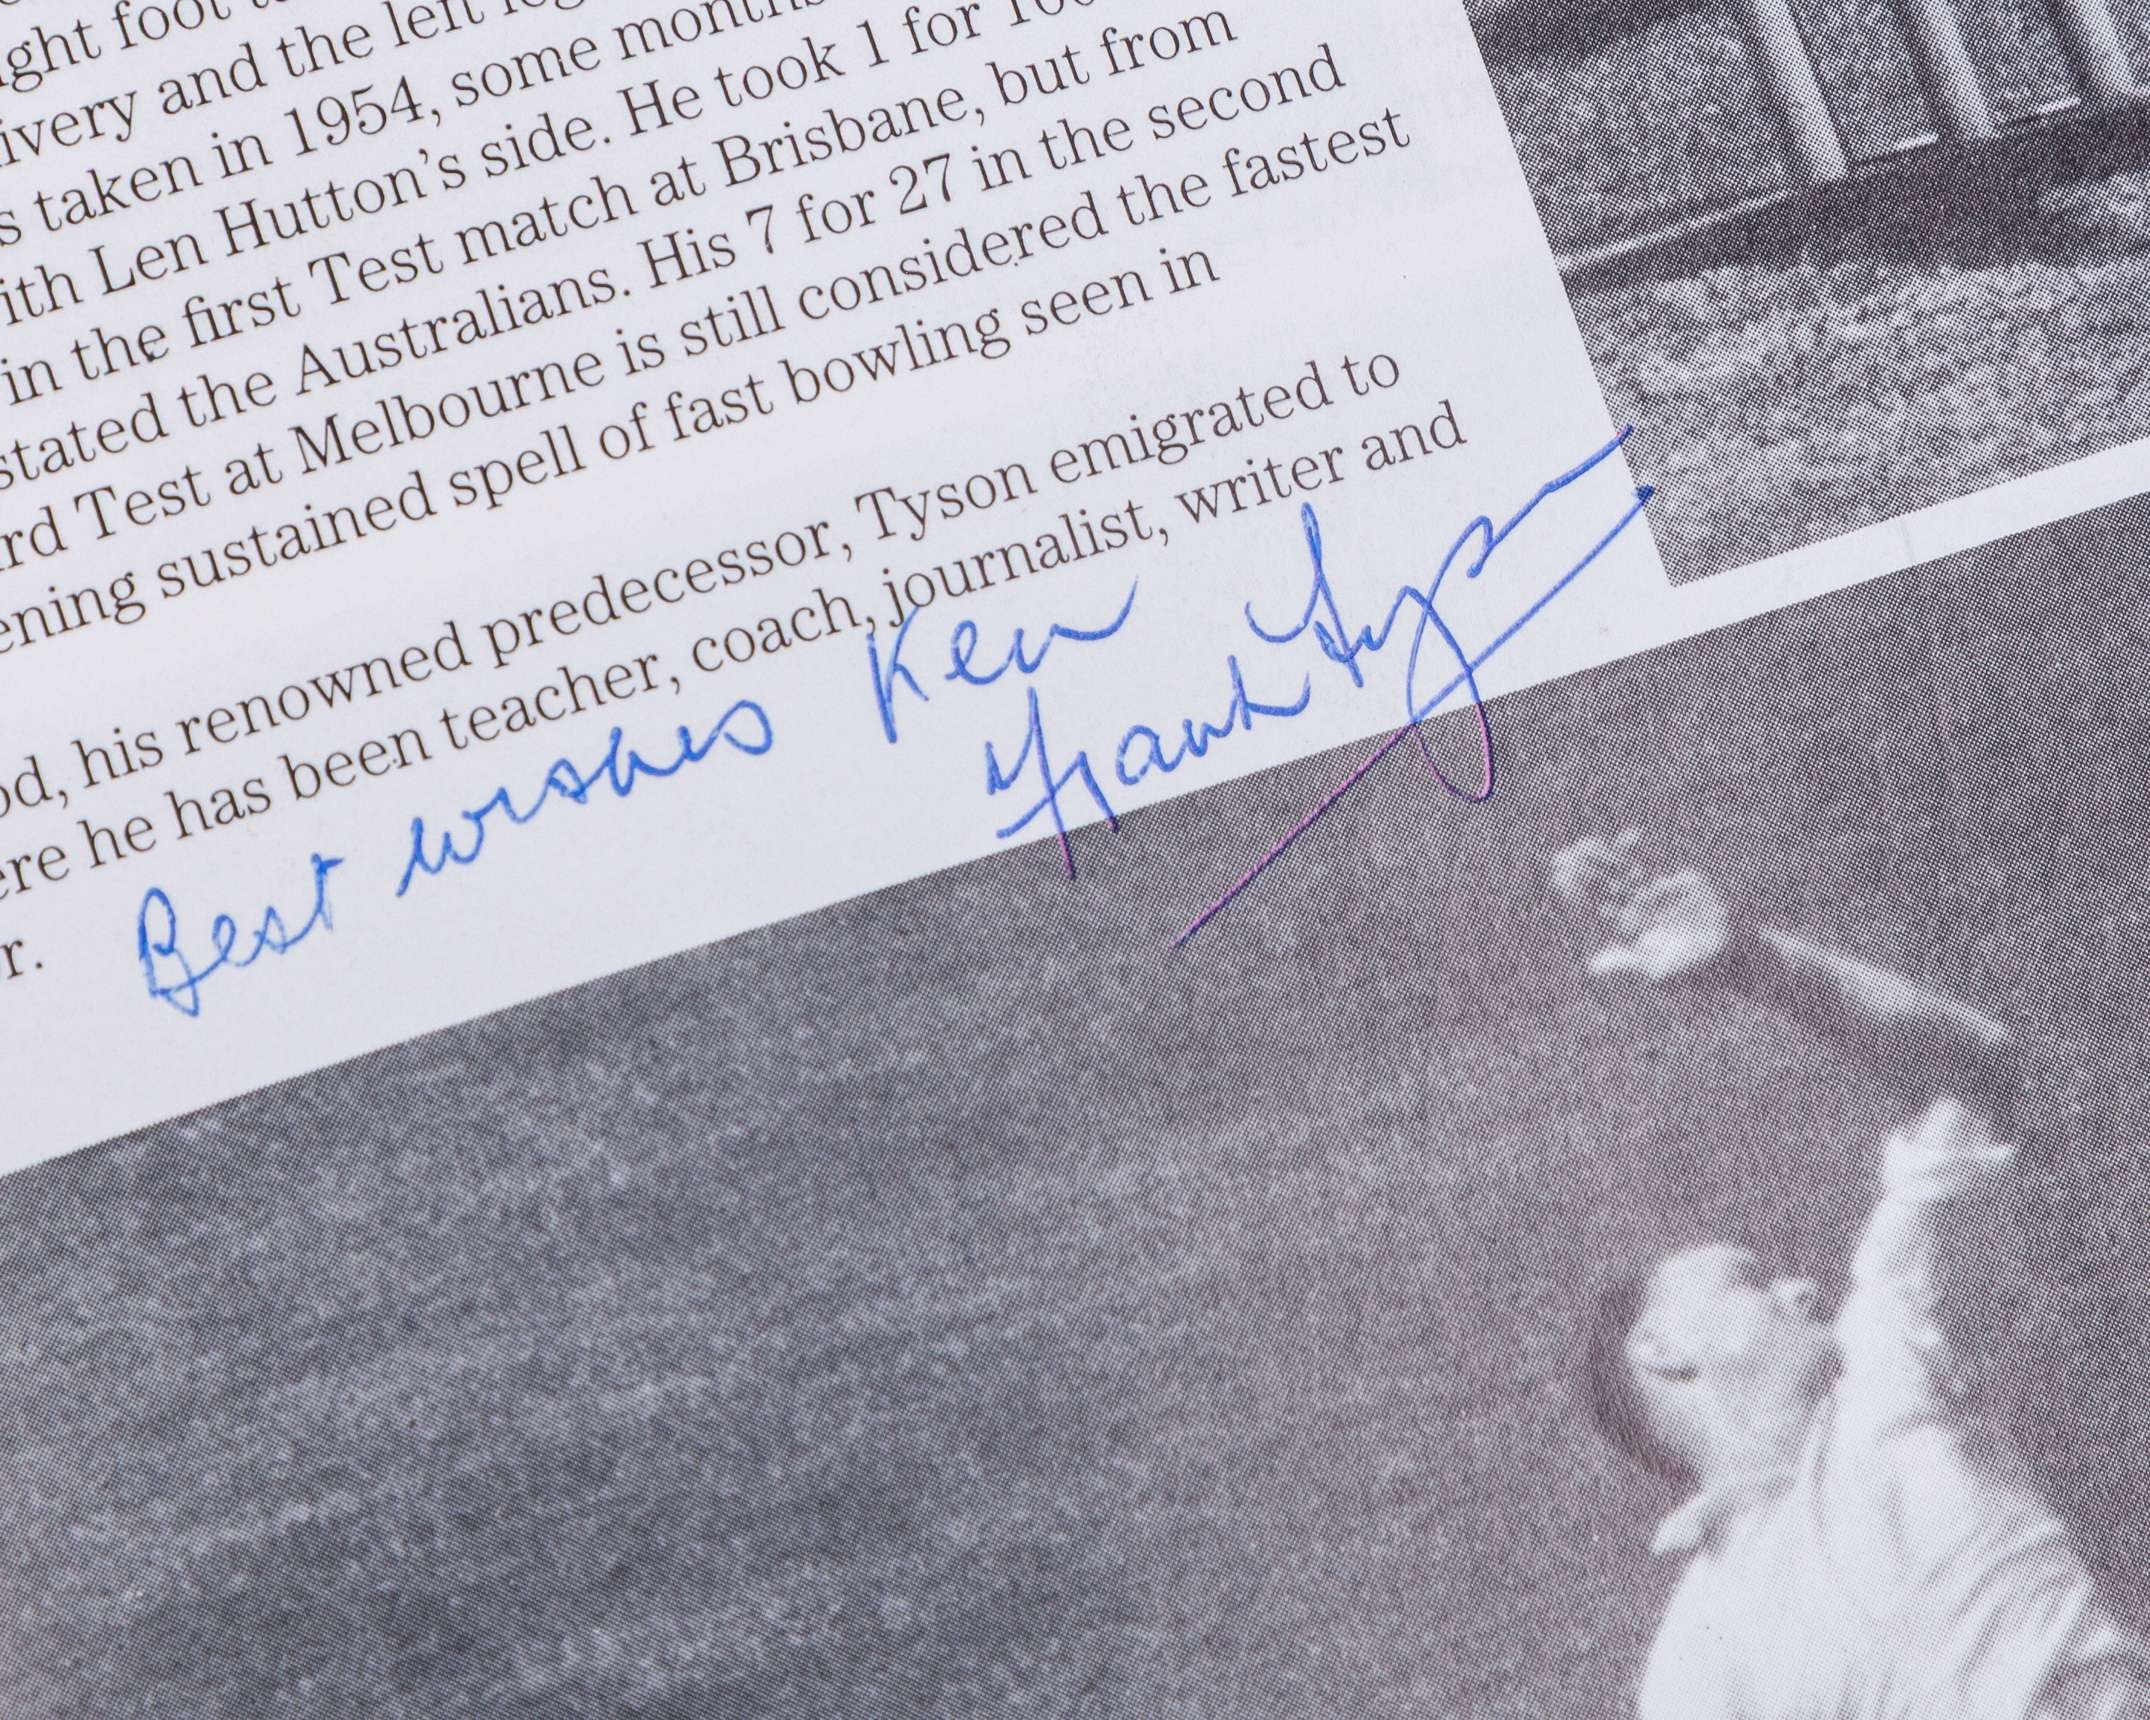 ight foot
ivery and the left
s taken in 1954, some months
ith Len Hutton's side. He took 1 for
in the first Test match at Brisbane, but from
stated the Australians. His 7 for 27 in the second
rd Test at Melbourne is still considered the fastest
ening sustained spell of fast bowling seen in
od, his renowned predecessor, Tyson emigrated to
ere he has been teacher, coach, journalist, writer and
r.
Best wishes Ken
Frank Tyson